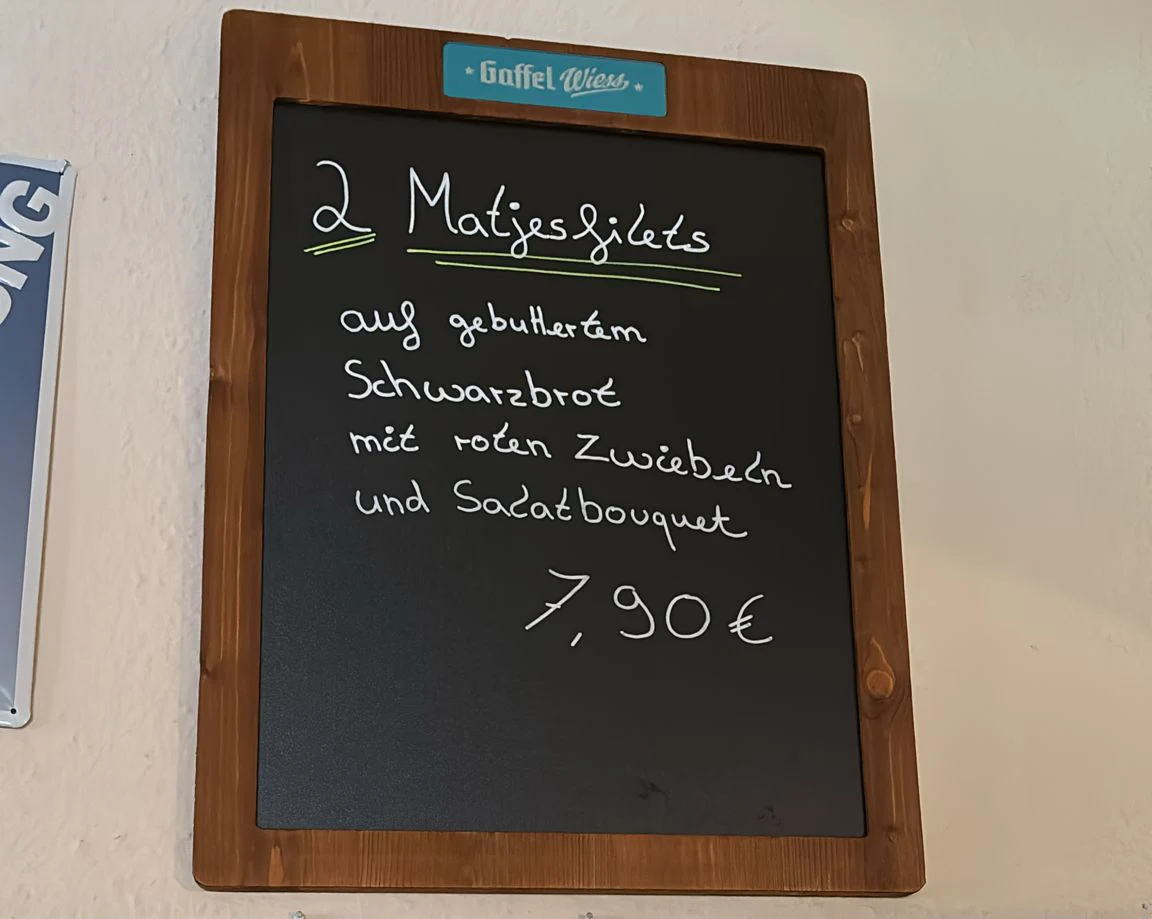 Gaffel Wiess
2 Matjesfilets
auf gebuttertem
Schwarzbrot
mit roten Zwiebeln
und Salatbouquet
7,90 €